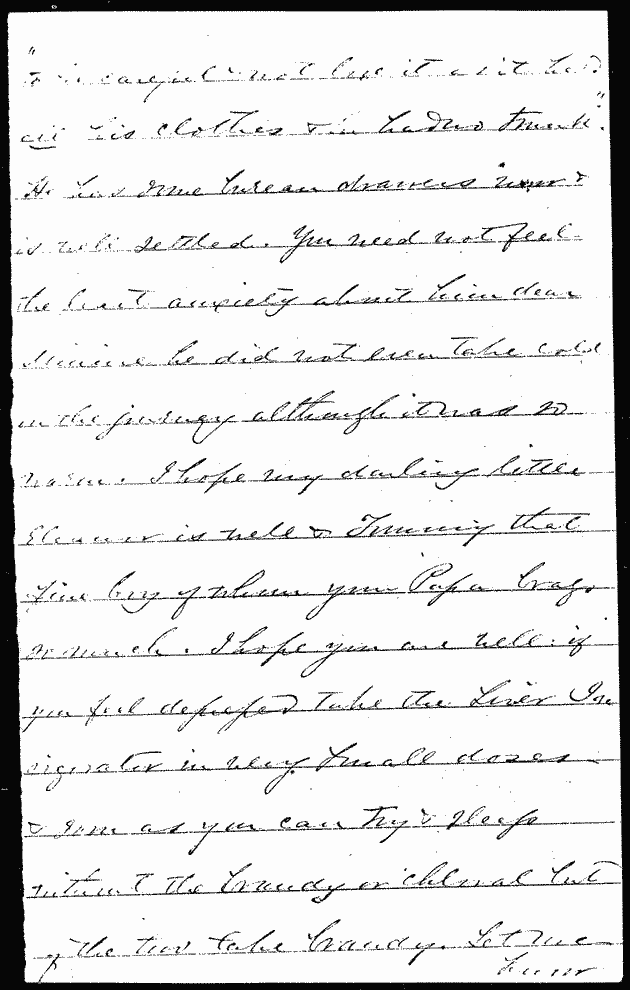 " to be careful & not lose it as it had
all his clothes & he had no trunk".
He has some bureau drawers now &
is well settled. You need not feel
the least anxiety about him dear
Minnie he did not even take cold
on the journey although it was so
warm. I hope my darling little
Eleanor is well & Jimmy that
fine boy of whom your Papa brags
so much. I hope you are well. if
you feel depressed take the Liver Inv
igorator in very small doses
& soon as you can try & sleep
without the brandy or chloral but
of the two take brandy. Let me
know